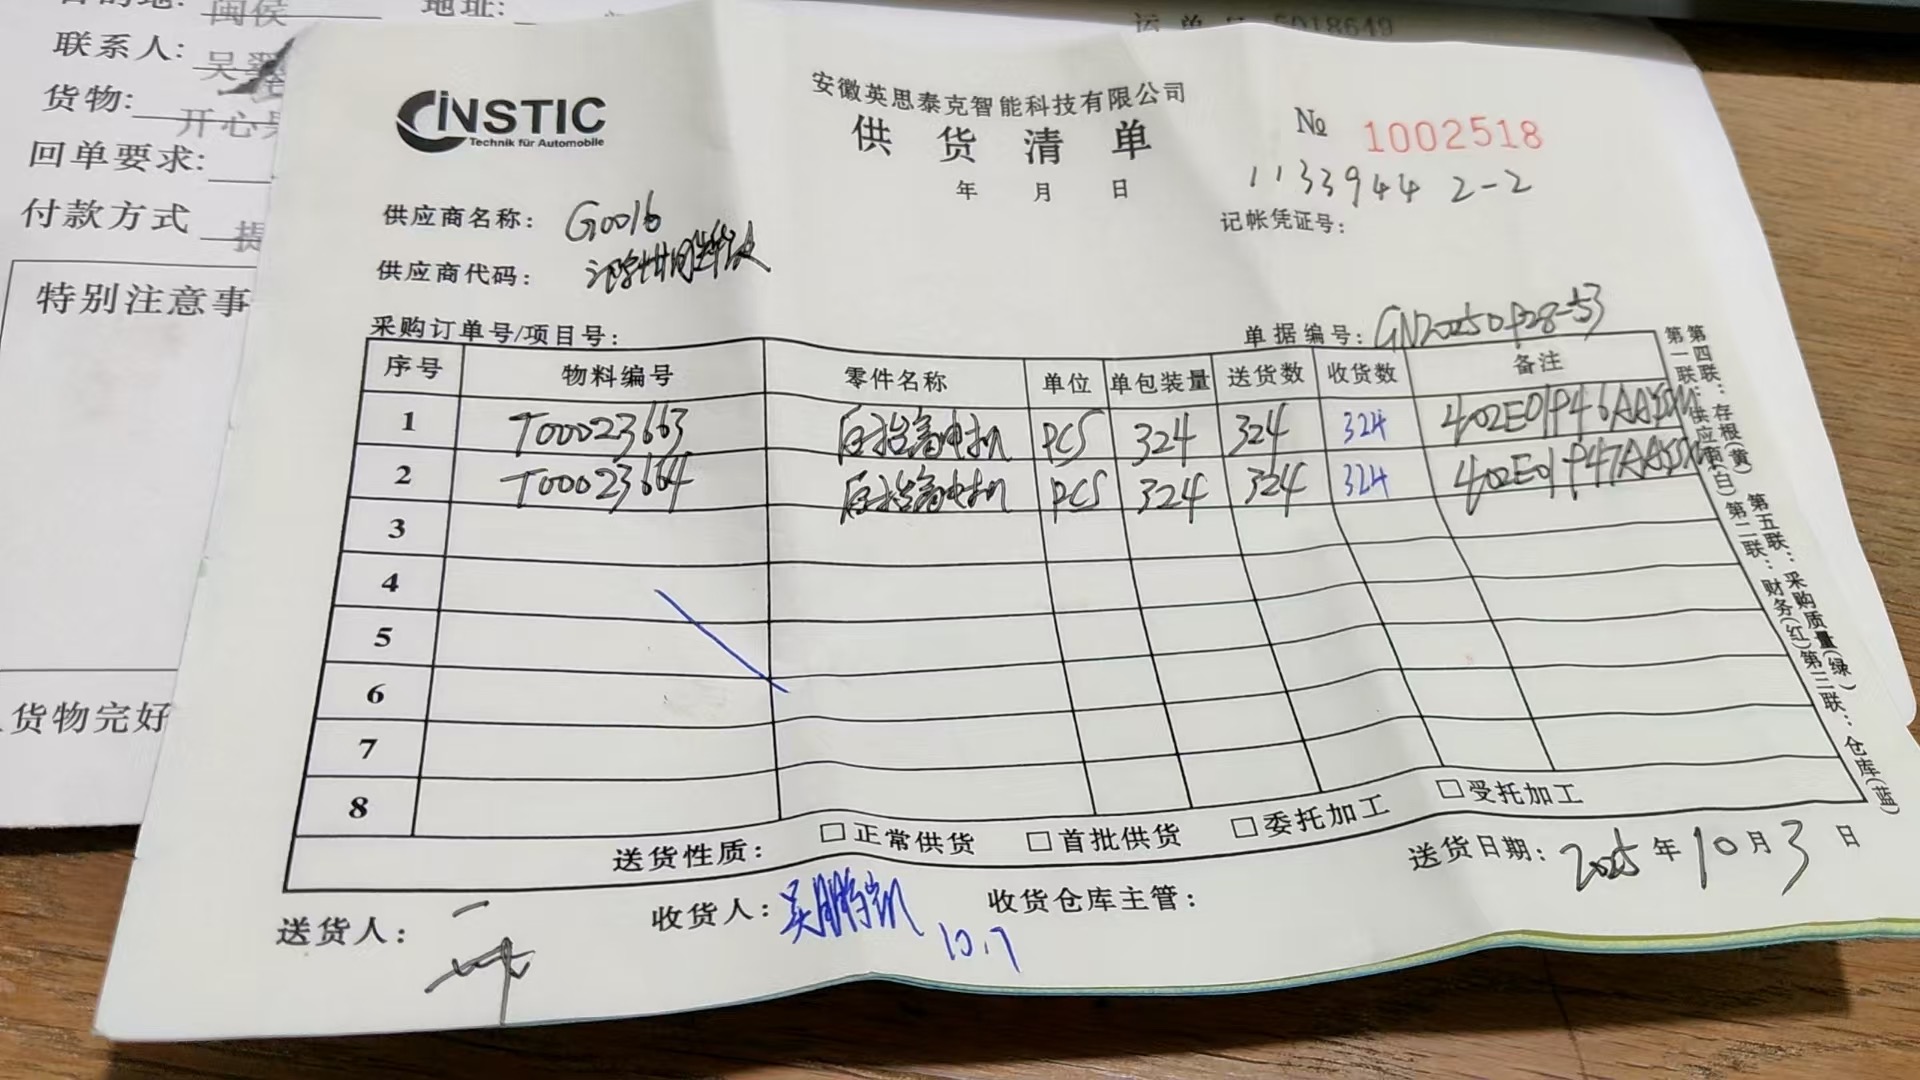 目的地: 闽侯 地址:
联系人: 吴
货物: 开心
回单要求:
付款方式 提
特别注意事
货物完好
运单号 5018649
INSTIC
Technik für Automobile
安徽英思泰克智能科技有限公司
供货清单
年 月 日
№ 1002518
1133944 2-2
记帐凭证号:
供应商名称: G0016
供应商代码:
采购订单号/项目号:
单据编号:
序号 物料编号 零件名称 单位 单包装量 送货数 收货数 备注
1 T00023663 后抬高电机 PCS 324 324 324 402E01P46AASSM
2 T00023664 后抬高电机 PCS 324 324 324 402E01P47AASSM
3
4
5
6
7
8
送货性质: □正常供货 □首批供货 □委托加工 □受托加工
送货人:
收货人: 吴鹏凯 10.7
收货仓库主管:
送货日期: 2025年10月3日
第一联:供应商(白) 第二联:财务(红) 第三联:仓库(蓝)
第四联:存根(黄) 第五联:采购质量(绿)